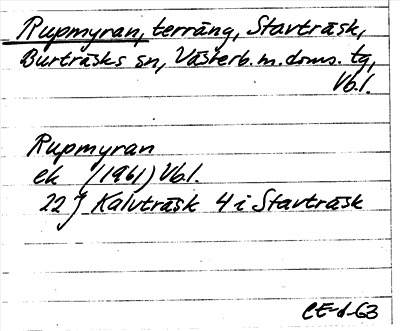 Rupmyran, terräng, Stavträsk,
Burträsks sn, Västerb. m. doms. tg,
Vb l.
Rupmyran
ek (1961) Vb l.
22 J Kalvträsk 4 i Stavträsk
CE-d-63